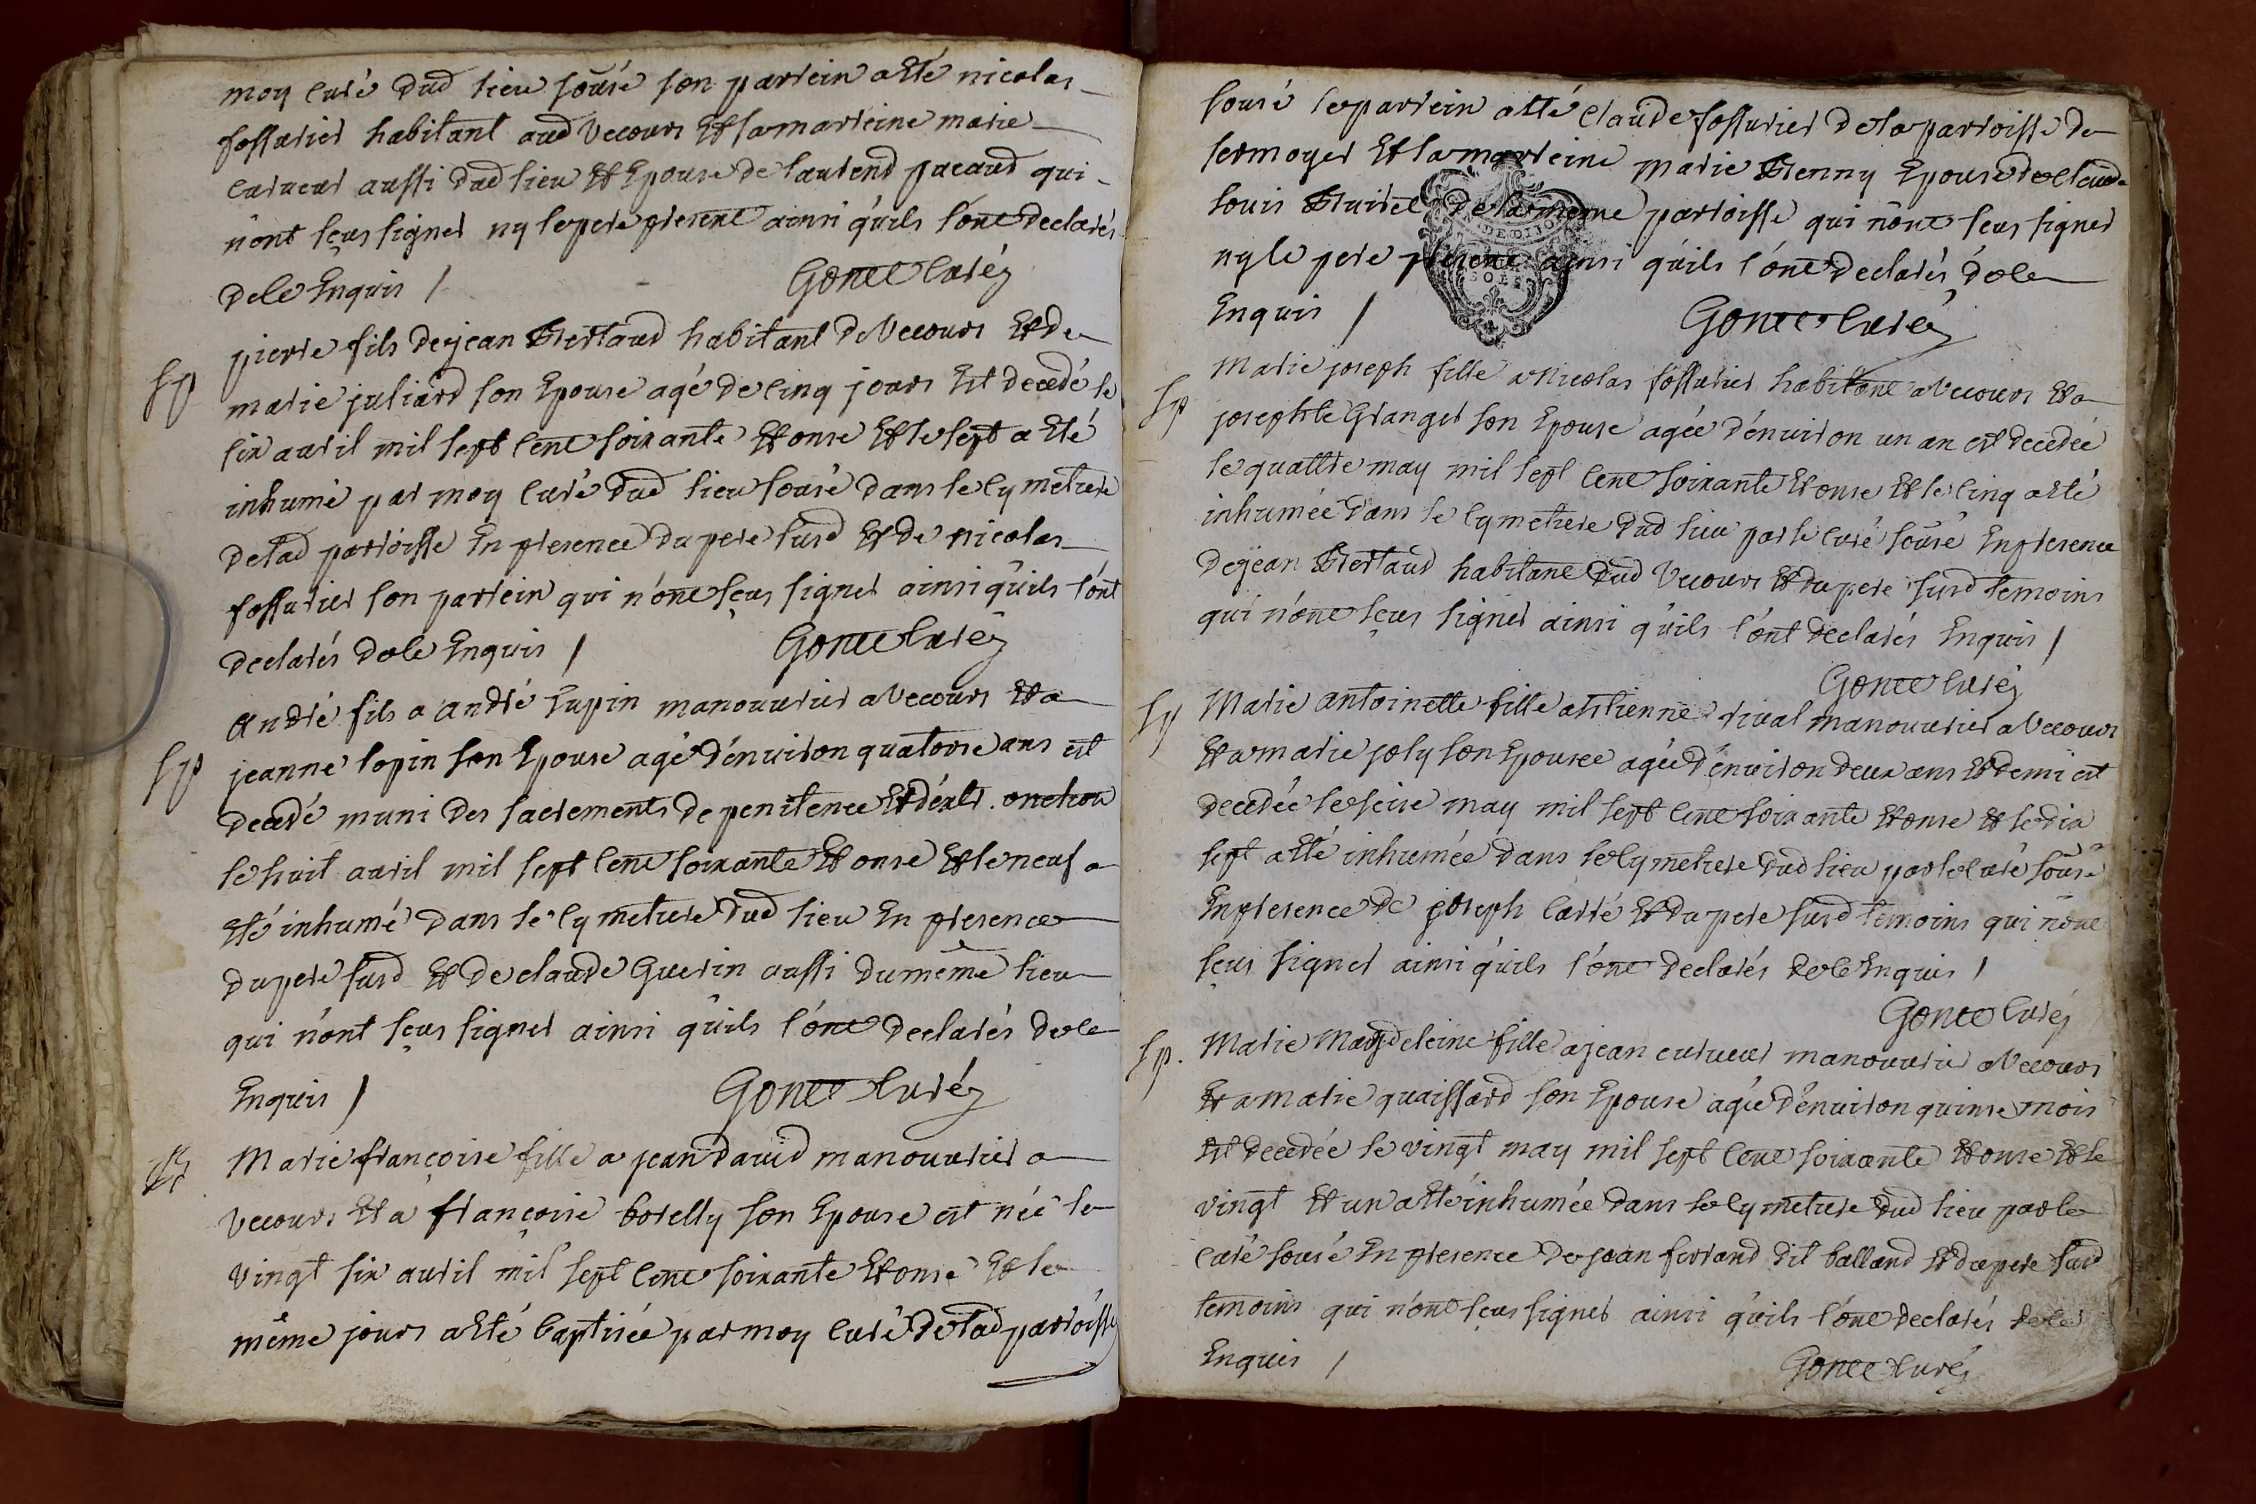 moy curé dud lieu sousé son partein a Eté nicolas
fossurier habitant aud Vecours Et la marteine marie
curveur aussi dud lieu Et Epouse de laurend pacaud qui
n'ont sçus signer ny le pere present ainsi qu'ils l'ont declarés
de ce Enquis / Gonet curé
Sp pierre fils de jean Bertaud habitant de Vecours Et de
marie juliard son Epouse agé de cinq jours Est decedé le
six avril mil sept cent soixante Et onse Et le sept a Eté
inhumé par moy curé dud lieu sousé dans le cymetiere
de lad parroisse En presence du pere susd Et de nicolas
fossurier son partein qui n'ont sçus signer ainsi qu'ils l'ont
declarés de ce Enquis / Gonet curé
André fils a André Lupin manouvrier a Vecours Et a
Sp jeanne lopin son Epouse agé d'environ quatorse ans est
decedé muni des sacrements de penitence Et d'ext. onction
le huit avril mil sept cent soixante Et onse Et le neuf a
Eté inhumé dans le cymetiere dud lieu En presence
du pere susd Et de claude Guerin aussi du même lieu
qui n'ont sçus signer ainsi qu'ils l'ont declarés de ce
Enquis / Gonet curé
Marie françoise fille a jean david manouvrier a
Vecours Et a françoise borelly son Epouse est née le
vingt six avril mil sept cent soixante Et onse Et le
même jours a Eté baptisée par moy curé de lad parroisse
sousé le partein a Eté claude fossurier de la parroisse de
sermoyer Et la marteine marie Brenny Epouse de claude
louis Bruiret de la meme parroisse qui n'ont sçus signer
ny le pere present ainsi qu'ils l'ont declarés de ce
Enquis / Gonet curé
Marie joseph fille a Nicolas fossurier habitant a Vecours Et a
Sp josephte Granger son Epouse agée d'environ un an est decedée
le quattre may mil sept cent soixante Et onse Et le cinq a Eté
inhumée dans le cymetiere dud lieu par le curé sousé En presence
de jean Bertaud habitant dud Vecours Et du pere susd temoins
qui n'ont sçus signer ainsi qu'ils l'ont declarés Enquis /
Gonet curé
Sp Marie antoinette fille a Etienne rival manouvrier a Vecours
Et a marie joly son Epouse agée d'environ deux ans Et demi est
decedée le seise may mil sept cent soixante Et onse Et le dix
sept a Eté inhumée dans le cymetiere dud lieu par le curé sousé
En presence de joseph carré Et du pere susd temoins qui n'ont
sçus signer ainsi qu'ils l'ont declarés de ce Enquis /
Gonet curé
Sp. Marie Magdeleine fille a jean curveur manouvrier a Vecours
Et a Marie quaissard son Epouse agée d'environ quinse mois
Est decedée le vingt may mil sept cent soixante Et onse Et le
vingt Et un a Eté inhumée dans le cymetiere dud lieu par le
curé sousé En presence de jean ferrand dit balland Et du pere susd
temoins qui n'ont sçus signer ainsi qu'ils l'ont declarés de ce
Enquis / Gonet curé